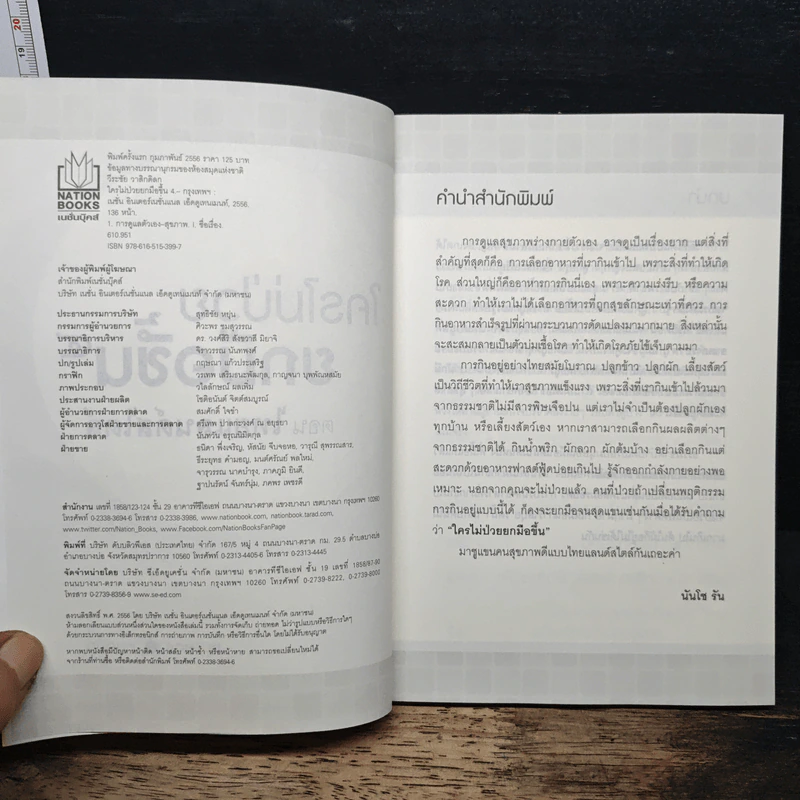 19
20
NATION
BOOKS
เนชั่นบุ๊คส์
พิมพ์ครั้งแรก กุมภาพันธ์ 2556 ราคา 125 บาท
ข้อมูลทางบรรณานุกรมของห้องสมุดแห่งชาติ
วีระชัย วาสิกดิลก
ใครไม่ป่วยยกมือขึ้น 4.– กรุงเทพฯ :
เนชั่น อินเตอร์เนชั่นแนล เอ็ดดูเทนเมนท์, 2556.
136 หน้า.
1. การดูแลตัวเอง–สุขภาพ. I. ชื่อเรื่อง.
610.951
ISBN 978-616-515-399-7
เจ้าของผู้พิมพ์ผู้โฆษณา
สำนักพิมพ์เนชั่นบุ๊คส์
บริษัท เนชั่น อินเตอร์เนชั่นแนล เอ็ดดูเทนเมนท์ จำกัด (มหาชน)
ประธานกรรมการบริษัท สุทธิชัย หยุ่น
กรรมการผู้อำนวยการ ศิวะพร ชมสุวรรณ
บรรณาธิการบริหาร ดร. วงศ์สิริ สังขวาสี มิยาจิ
บรรณาธิการ จิราวรรณ นันทพงศ์
ปก/รูปเล่ม กฤษณา แก้วประเสริฐ
กราฟิก วรเทพ เสริมธนะพัฒกุล, กาญจนา บุพพัณหสมัย
ภาพประกอบ วิไลลักษณ์ ผลเพิ่ม
ประสานงานฝ่ายผลิต โชติอนันต์ จิตต์สมบูรณ์
ผู้อำนวยการฝ่ายการตลาด สมศักดิ์ ใจขำ
ผู้จัดการอาวุโสฝ่ายขายและการตลาด ตรีเทพ ปาลกะวงศ์ ณ อยุธยา
ฝ่ายการตลาด นันท์วัน อรุณนิมิตกุล
ฝ่ายขาย ธนิดา พึ่งเจริญ, หัสนัย จีบจอหอ, วารุณี สุพรรณสาร,
ธีระยุทธ คำมอญ, มนต์ศรัณย์ พลใหม่,
จารุวรรณ นาคบำรุง, ภาคภูมิ ยินดี,
ฐาปนรัตน์ จันทร์นุ่ม, ภคพร เพชรดี
สำนักงาน เลขที่ 1858/123-124 ชั้น 29 อาคารทีซีไอเอฟ ถนนบางนา-ตราด แขวงบางนา เขตบางนา กรุงเทพฯ 10260
โทรศัพท์ 0-2338-3694-6 โทรสาร 0-2338-3986, www.nationbook.com, nationbook.tarad.com,
www.twitter.com/Nation_Books, www.Facebook.com/NationBooksFanPage
พิมพ์ที่ บริษัท ดับบลิวพีเอส (ประเทศไทย) จำกัด 167/5 หมู่ 4 ถนนบางนา-ตราด กม. 29.5 ตำบลบางบ่อ
อำเภอบางบ่อ จังหวัดสมุทรปราการ 10560 โทรศัพท์ 0-2313-4405-6 โทรสาร 0-2313-4445
จัดจำหน่ายโดย บริษัท ซีเอ็ดยูเคชั่น จำกัด (มหาชน) อาคารทีซีไอเอฟ ชั้น 19 เลขที่ 1858/87-90
ถนนบางนา-ตราด แขวงบางนา เขตบางนา กรุงเทพฯ 10260 โทรศัพท์ 0-2739-8222, 0-2739-8000
โทรสาร 0-2739-8356-9 www.se-ed.com
สงวนลิขสิทธิ์ พ.ศ. 2556 โดย บริษัท เนชั่น อินเตอร์เนชั่นแนล เอ็ดดูเทนเมนท์ จำกัด (มหาชน)
ห้ามลอกเลียนแบบส่วนหนึ่งส่วนใดของหนังสือเล่มนี้ รวมทั้งการจัดเก็บ ถ่ายทอด ไม่ว่ารูปแบบหรือวิธีการใดๆ
ด้วยกระบวนการทางอิเล็กทรอนิกส์ การถ่ายภาพ การบันทึก หรือวิธีการอื่นใด โดยไม่ได้รับอนุญาต
หากพบหนังสือมีปัญหาหน้าติด หน้าสลับ หน้าซ้ำ หรือหน้าหาย สามารถขอเปลี่ยนใหม่ได้
จากร้านที่ท่านซื้อ หรือติดต่อสำนักพิมพ์ โทรศัพท์ 0-2338-3694-6
คำนำสำนักพิมพ์
การดูแลสุขภาพร่างกายตัวเอง อาจดูเป็นเรื่องยาก แต่สิ่งที่
สำคัญที่สุดก็คือ การเลือกอาหารที่เรากินเข้าไป เพราะสิ่งที่ทำให้เกิด
โรค ส่วนใหญ่ก็คืออาหารการกินนี่เอง เพราะความเร่งรีบ หรือความ
สะดวก ทำให้เราไม่ได้เลือกอาหารที่ถูกสุขลักษณะเท่าที่ควร การ
กินอาหารสำเร็จรูปที่ผ่านกระบวนการดัดแปลงมามากมาย สิ่งเหล่านั้น
จะสะสมกลายเป็นตัวบ่มเชื้อโรค ทำให้เกิดโรคภัยไข้เจ็บตามมา
การกินอยู่อย่างไทยสมัยโบราณ ปลูกข้าว ปลูกผัก เลี้ยงสัตว์
เป็นวิถีชีวิตที่ทำให้เราสุขภาพแข็งแรง เพราะสิ่งที่เรากินเข้าไปล้วนมา
จากธรรมชาติไม่มีสารพิษเจือปน แต่เราไม่จำเป็นต้องปลูกผักเอง
ทุกบ้าน หรือเลี้ยงสัตว์เอง หากเราสามารถเลือกกินผลผลิตต่างๆ
จากธรรมชาติได้ กินน้ำพริก ผักลวก ผักต้มบ้าง อย่าเลือกกินแต่
สะดวกด้วยอาหารฟาสต์ฟู้ดบ่อยเกินไป รู้จักออกกำลังกายอย่างพอ
เหมาะ นอกจากคุณจะไม่ป่วยแล้ว คนที่ป่วยถ้าเปลี่ยนพฤติกรรม
การกินอยู่แบบนี้ได้ ก็คงจะยกมือจนสุดแขนเช่นกันเมื่อได้รับคำถาม
ว่า “ใครไม่ป่วยยกมือขึ้น”
มาชูแขนคนสุขภาพดีแบบไทยแลนด์สไตล์กันเถอะค่า
นันโซ รัน